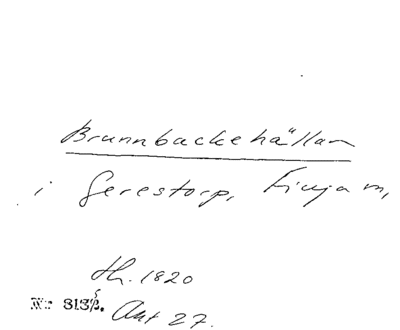 Brunnbackehällan
i Gerestorp, Finja sn,
th. 1820
Nr 813⅔. Akt 27.